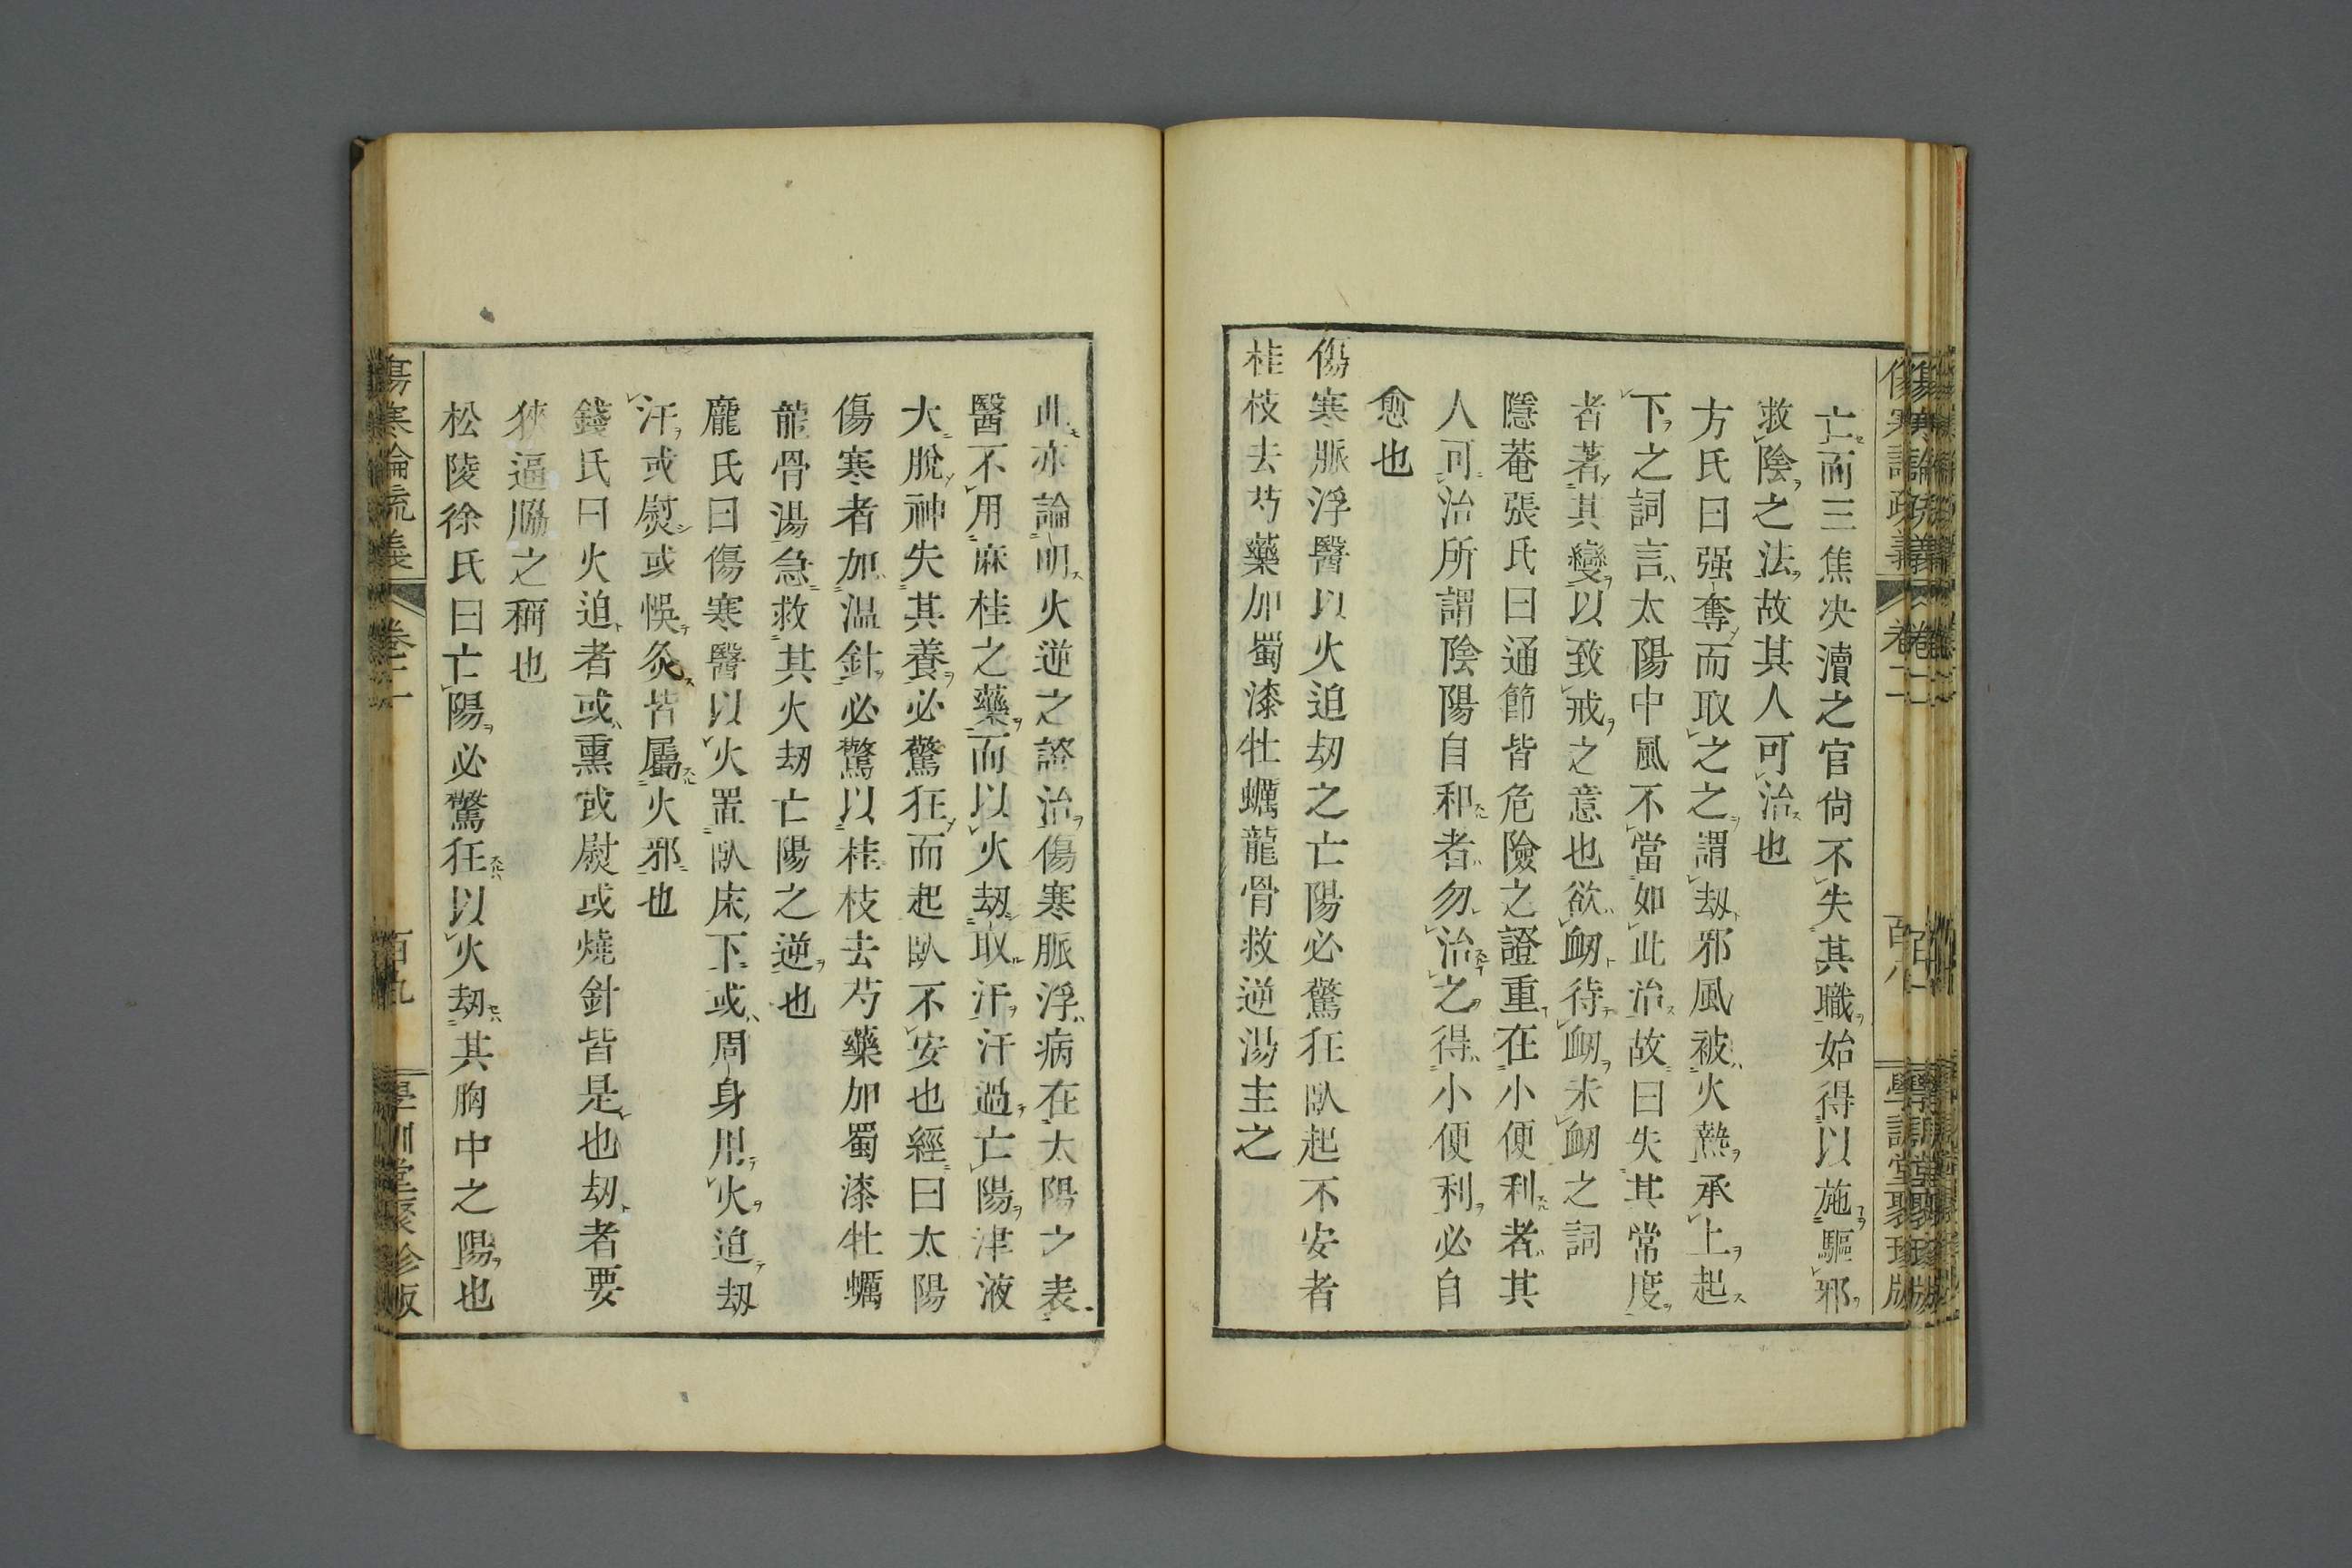 傷寒論疏義 卷二 百八 學訓堂聚珍版
亡而三焦决瀆之官尙不失其職始得以施驅邪
救陰之法故其人可治也
方氏曰强奪而取之之謂刼邪風被火熱承上起
下之詞言太陽中風不當如此治故曰失其常度
者著其變以致戒之意也欲衂待衂未衂之詞
隱菴張氏曰通節皆危險之證重在小便利者其
人可治所謂陰陽自和者勿治之得小便利必自
愈也
傷寒脈浮醫以火迫刼之亡陽必驚狂臥起不安者
桂枝去芍藥加蜀漆牡蠣龍骨救逆湯主之
此亦論明火逆之證治傷寒脈浮病在太陽之表
醫不用麻桂之藥而以火刼取汗汗過亡陽津液
大脫神失其養必驚狂而起臥不安也經曰太陽
傷寒者加温針必驚以桂枝去芍藥加蜀漆牡蠣
龍骨湯急救其火刼亡陽之逆也
龐氏曰傷寒醫以火置臥床下或周身用火迫刼
汗或熨或悞灸皆屬火邪也
錢氏曰火迫者或熏或熨或燒針皆是也刼者要
狹逼脇之稱也
松陵徐氏曰亡陽必驚狂以火刼其胸中之陽也
傷寒論疏義 卷二 百九 學訓堂聚珍版